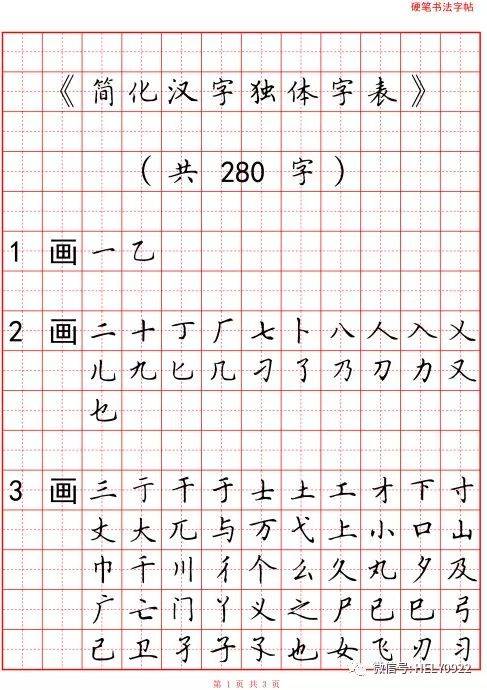 硬笔书法字帖
《简化汉字独体字表》
（共280字）
1画 一乙
2画 二十丁厂七卜八人入乂
儿九匕几刁了乃刀力又
乜
3画 三亍干于士土工才下寸
丈大兀与万弋上小口山
巾千川彳个么久丸夕及
广亡门丫义之尸已巳弓
己卫孑子孓也女飞刃习
微信号: HELY0922
第 1 页 共 3 页